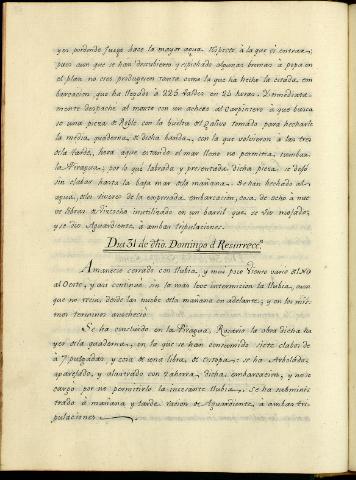 y es pordonde juzga hace la mayor agua. Respecto à la que si entraa,
pues aun que se hán descubierto y espichado algunas bromas à popa en
el plan no creo produgesen tanta como la que ha hecho la citada em-
barcacion, que ha llegado à 225 valdes en 24 horas. Inmediata-
mente despaché al monte con un achero al Carpintero à que busca
se una pieza de Roble con la buelta del Galivo tomado para hecharle
la média quaderna, de dicha banda, con la que volvieron à las tres
de la tarde, hora aque estando el mar lleno no permitia, tumbar
la Piragua; por lo que labrada y presentada dicha pieza se defi-
rio clabar hasta la baja mar de la mañana. Se hán hechado al
agua, delos viveres de la expresada, embarcacion, cosa, de ocho à nue
ve libras de Vizcocho inutilizado en un barril que, se vió mojado;
y se dio Aguardiente, à ambas tripulaciones.
Dia 31 de dho. Domingo de Resurrecc.n
Amaneció cerrado con llubia, y mui poco viento vario del NO
al Oeste, y asi continuó, sin la mas leve intermicion la llubia, aun
que no recia; desde las nuebe de la mañana en adelante; y en los mis-
mos terminos anocheció.
Se ha concluido en la Piragua, Rosario la obra dicha ha
yer de la quaderna, en la que se han consumido siete clabos de
à 7 pulgadas, y cosa de una libra, de estopa: se ha Arbolado,
aparejado, y alastrado con zahorra, dicha embarcacion; y no se
cargó por no permitirlo la incesante llubia. Se ha subminis-
trado à mañana y tarde racion de Aguardiente, à ambas tri-
pulaciones.